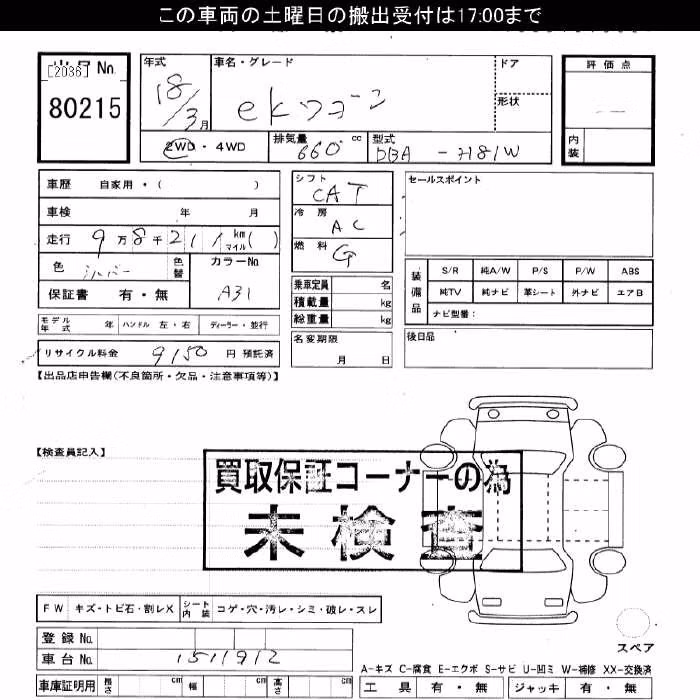 この車両の土曜日の搬出受付は17:00まで
[2036] No.
80215
年式 18/3月
車名・グレード ekワゴン
ドア
形状
評価点
内装
2WD・4WD
排気量 660 cc
型式 DBA - H81W
車歴 自家用・( )
車検 年 月
走行 9万8千211 km マイル ( )
色 シルバー 色替
カラーNo. A31
保証書 有・無
シフト CAT
冷房 AC
燃料 G
乗車定員 名
積載量 kg
総重量 kg
名変期限 月 日
セールスポイント
装備品
S/R 純A/W P/S P/W ABS
純TV 純ナビ 革シート 外ナビ エアB
ナビ型番:
後日品
モデル年式 年 ハンドル 左・右 ディーラー・並行
リサイクル料金 9150 円 預託済
【出品店申告欄(不良箇所・欠品・注意事項等)】
【検査員記入】
買取保証コーナーの為
未検査
FW キズ・トビ石・割レX シート内装 コゲ・穴・汚レ・シミ・破レ・スレ
登録No.
車台No. 1511912
車庫証明用 長さ cm 幅 cm 高さ cm
スペア
A-キズ C-腐食 E-エクボ S-サビ U-凹ミ W-補修 XX-交換済
工具 有・無 ジャッキ 有・無